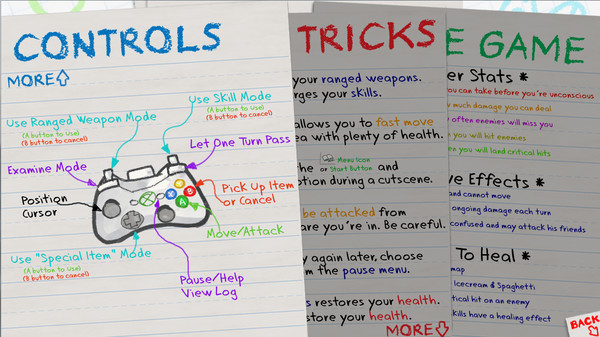 CONTROLS
MORE
Use Ranged Weapon Mode
(A button to use)
(B button to cancel)
Use Skill Mode
(A button to use)
(B button to cancel)
Let One Turn Pass
Examine Mode
Position
Cursor
Pick Up Item
or Cancel
Move/Attack
B
A
Use "Special Item" Mode
(A button to use)
(B button to cancel)
Pause/Help
View Log
TRICKS
your ranged weapons.
rges your skills.
allows you to fast move
ea with plenty of health.
he Menu Icon
or Start Button and
otion during a cutscene.
be attacked from
are you're in. Be careful.
y again later, choose
m the pause menu.
s restores your health.
store your health.
MORE
E GAME
er Stats *
you can take before you're unconscious
much damage you can deal
often enemies will miss you
you will hit enemies
en you will land critical hits
ve Effects *
and cannot move
ongoing damage each turn
confused and may attack his friends
To Heal *
map
Icecream & Spaghetti
tical hit on an enemy
skills have a healing effect
BACK